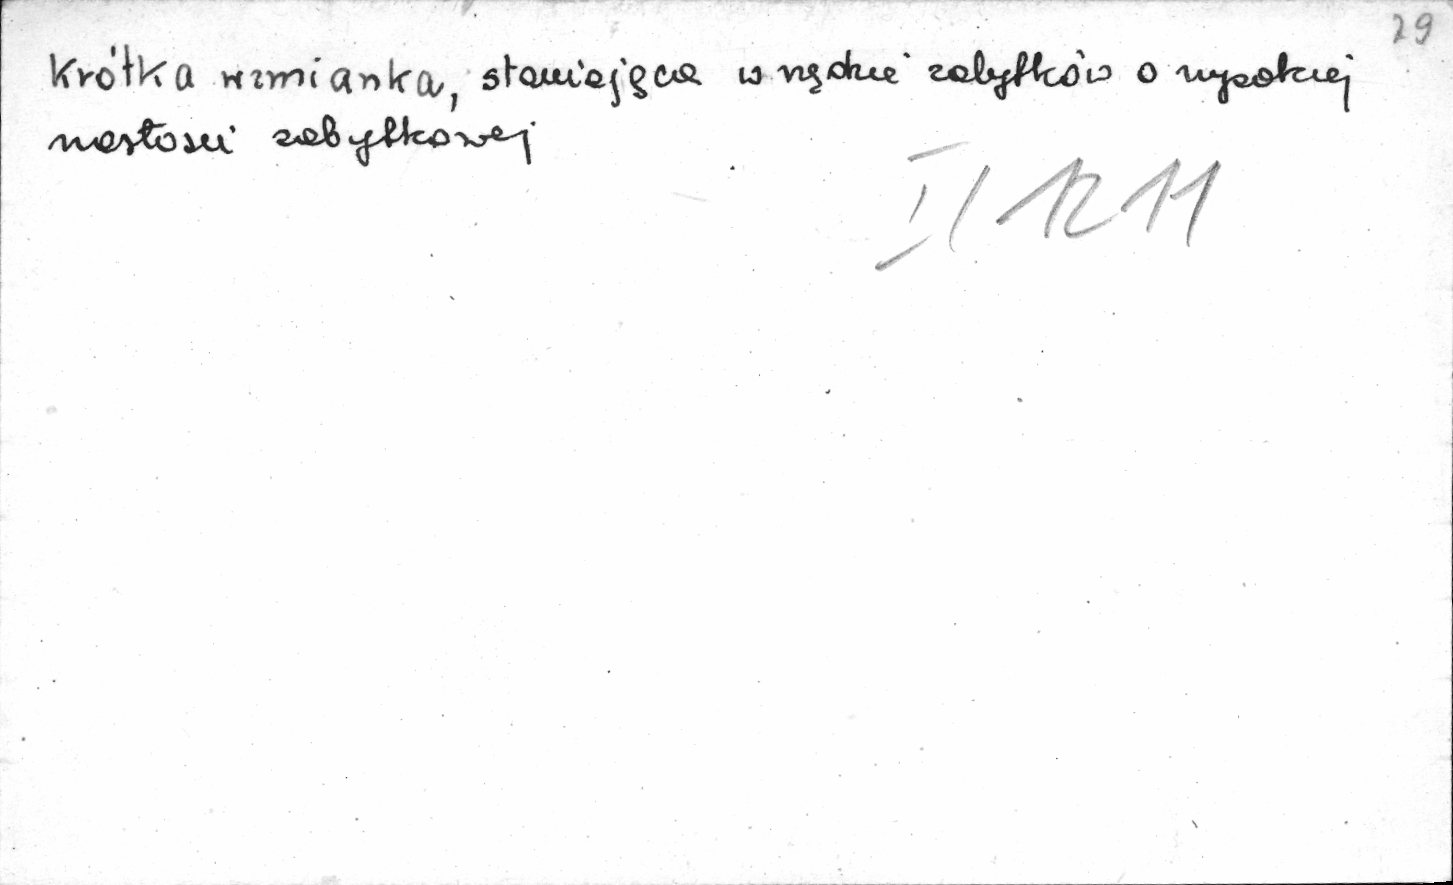 29
Krótka wzmianka, stawiająca w rzędzie zabytków o wysokiej
wartości zabytkowej
I/1211